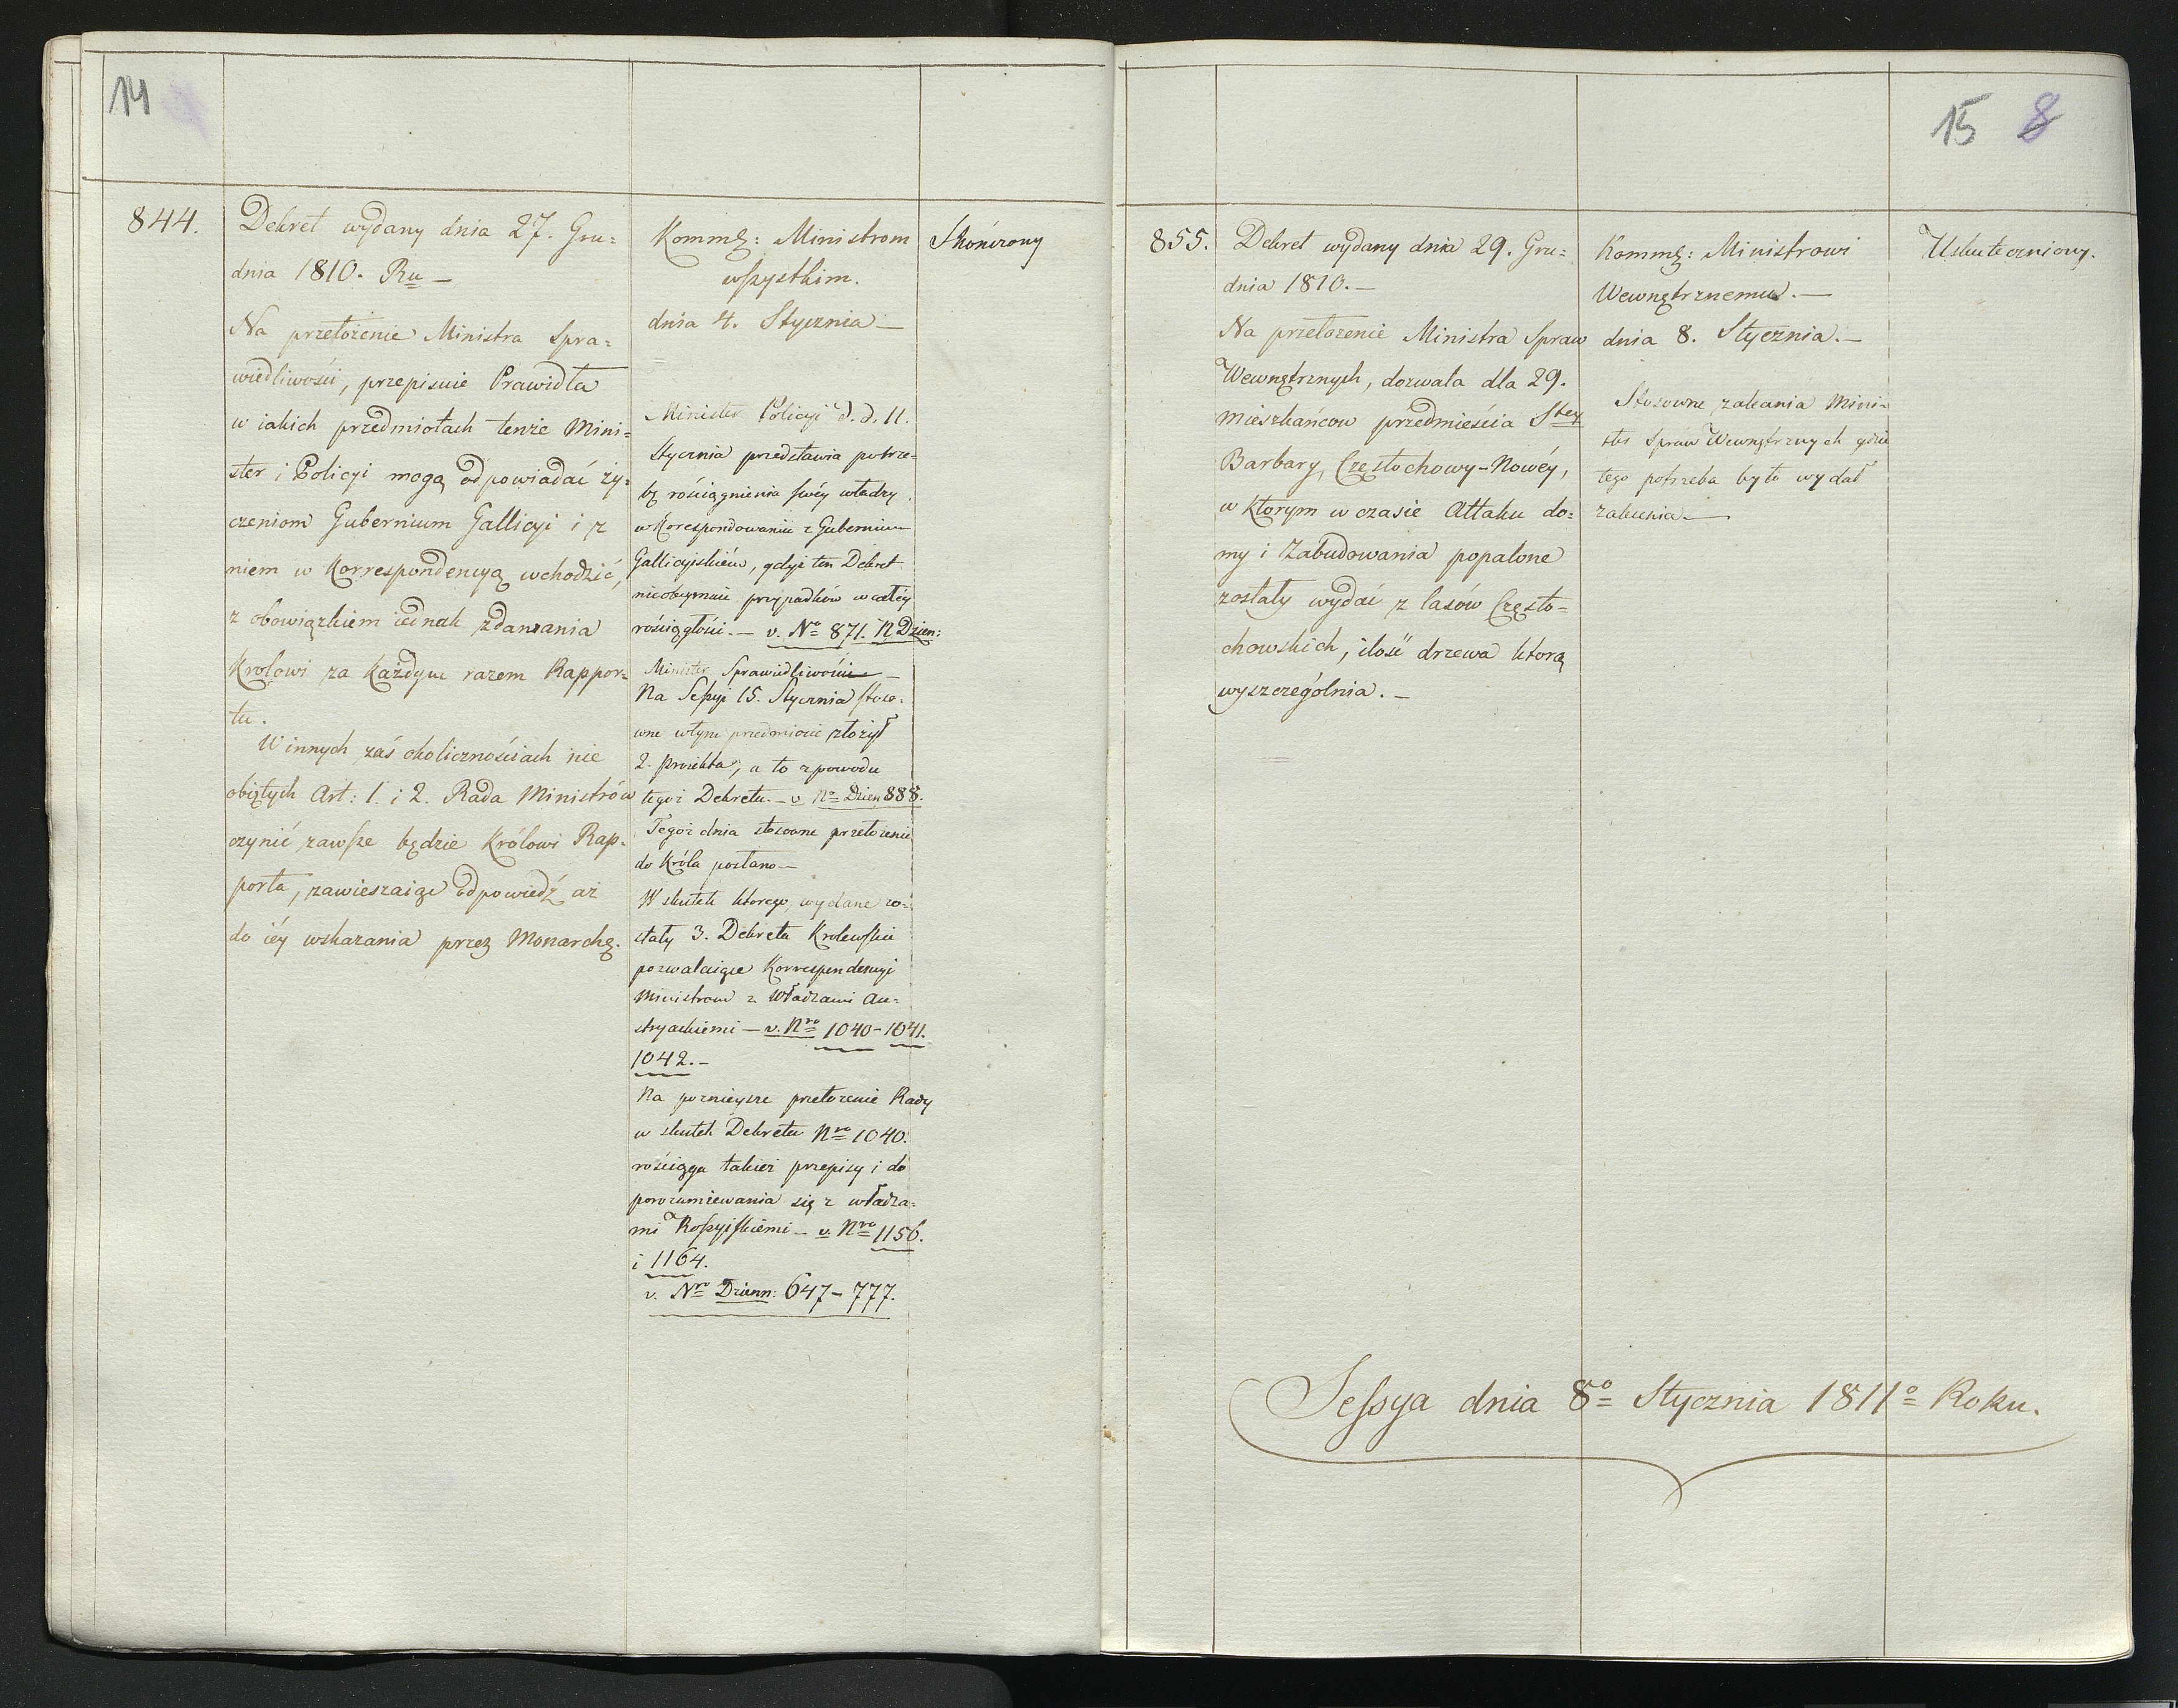 14
844.
Dekret wydany dnia 27. Gru=
dnia 1810. Ru —
Na przełożenie Ministra Spra=
wiedliwości, przepisuie Prawidła
w iakich przedmiotach tenże Mini=
ster i Policyi mogą odpowiadać ży=
czeniom Gubernium Gallicyi i z
niem w Korrespondencyą wchodzić,
z obowiązkiem iednak zdawania
Krolowi za każdym razem Rappor=
tu.
W innych zaś okolicznościach nie
obiętych Art: 1. i 2. Rada Ministrów
czynić zawsze będzie Królowi Rap=
porta, zawieszaiąc odpowiedź aż
do iéy wskazania przez Monarchę.
Kommę: Ministrom
wszystkim.
dnia 4. Stycznia —
Minister Policyi d. d. 11.
Stycznia przedstawia potrze=
bę rościągnienia swéy władzy
w Korespondowaniu z Gubernium
Gallicyiskiém, gdyż ten Dekret
nieobeymuie przypadków w całéy
rościągłości. — v. No 871. N Dzien:
Minister Sprawiedliwości —
Na Sessyi 15. Stycznia stoso=
wne w tym przedmiocie złożył
2. proiekta, a to z powodu
tegoż Dekretu. — v. No Dzien 888.
Tegoż dnia stosowne przełożenie
do Króla posłano —
W skutek ktorego wydane zo=
stały 3. Dekreta Krolewskie
pozwalaiące Korrespondencyi
Ministrom z Władzami Au=
stryackiemi — v. Nro 1040 - 1041.
1042. —
Na poznieysze przełożenie Rady
w skutek Dekretu Nro 1040.
rościąga takież przepisy i do
porozumiewania się z władza=
mi Rossyiskiemi — v. Nro 1156.
i 1164.
v. Nro Dzienn: 647 - 777.
Skończony
15 8
855.
Dekret wydany dnia 29. Gru=
dnia 1810. —
Na przełożenie Ministra Spraw
Wewnętrznych, dozwala dla 29.
mieszkańcow przedmieścia Stey
Barbary, Częstochowy-Nowéy,
w ktorym w czasie Attaku do=
my i Zabudowania popalone
zostały wydać z lasów Często=
chowskich, ilość drzewa ktorą
wyszczególnia. —
Kommę: Ministrowi
Wewnętrznemu. —
dnia 8. Stycznia. —
Stosowne zalecania Mini=
ster Spraw Wewnętrznych gdzie
tego potrzeba było wydał
zalecenia —
Uskuteczniony.
Sessya dnia 8o Stycznia 1811o Roku.